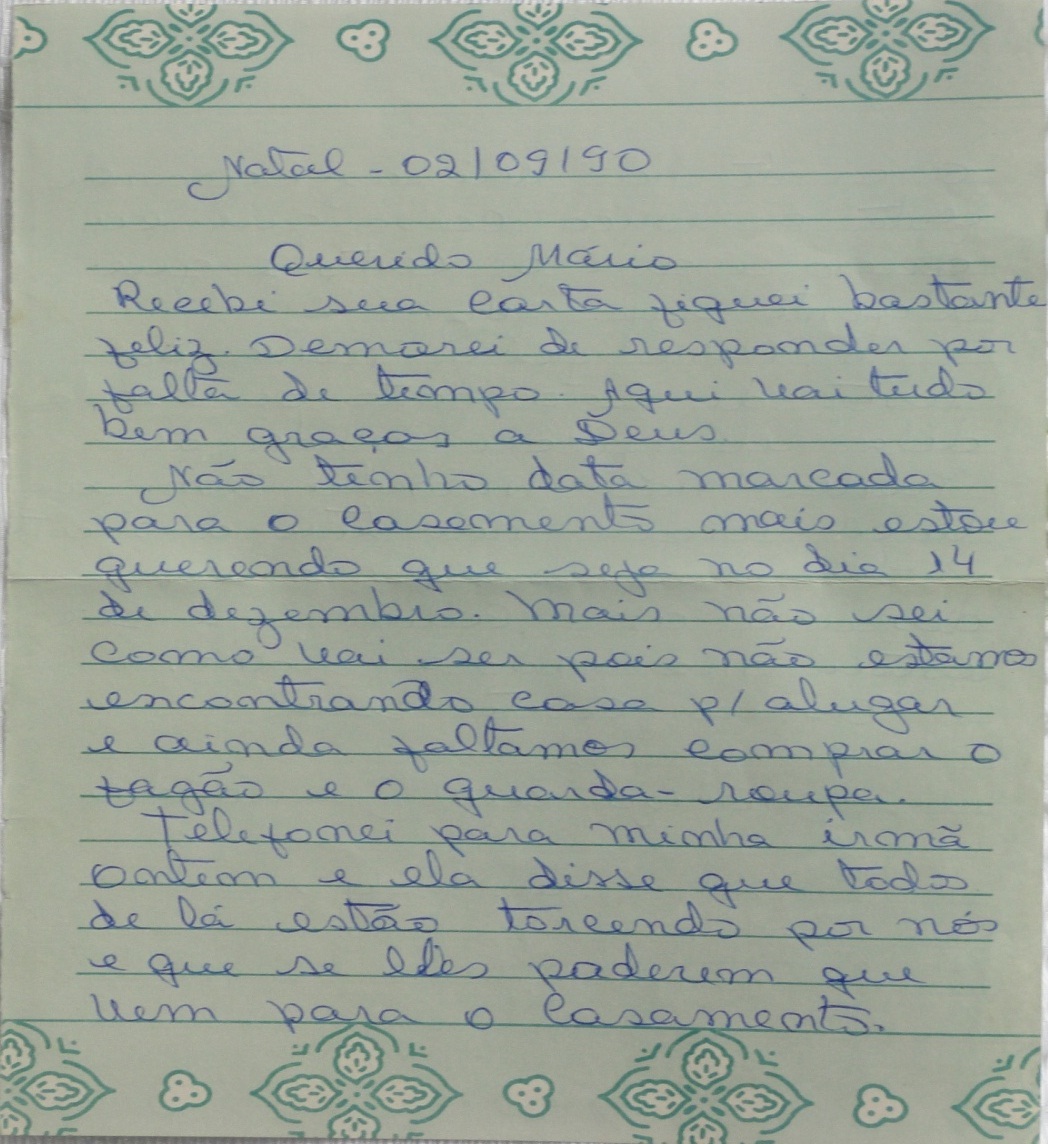 Natal - 02/09/90
Querido Mário
Recebi sua carta fiquei bastante
feliz. Demorei de responder por
falta de tempo. Aqui vai tudo
bem graças a Deus.
Não tenho data marcada
para o casamento mais estou
querendo que seja no dia 14
de dezembro. Mais não sei
como vai ser pois não estamos
encontrando casa p/ alugar
e ainda faltamos comprar o
fogão e o guarda-roupa.
Telefonei para minha irmã
ontem e ela disse que todos
de lá estão torcendo por nós
e que se eles poderem que
vem para o casamento.